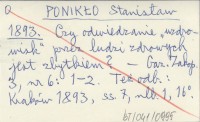 PONIKŁO Stanisław
1893. Czy odwiedzanie „uzdrowisk” przez ludzi zdrowych
jest zbytkiem? – Gaz. Zakop.
3, nr 6: 1–2. Też odb:
Kraków 1893, ss. 7, nlb. 1, 16°.